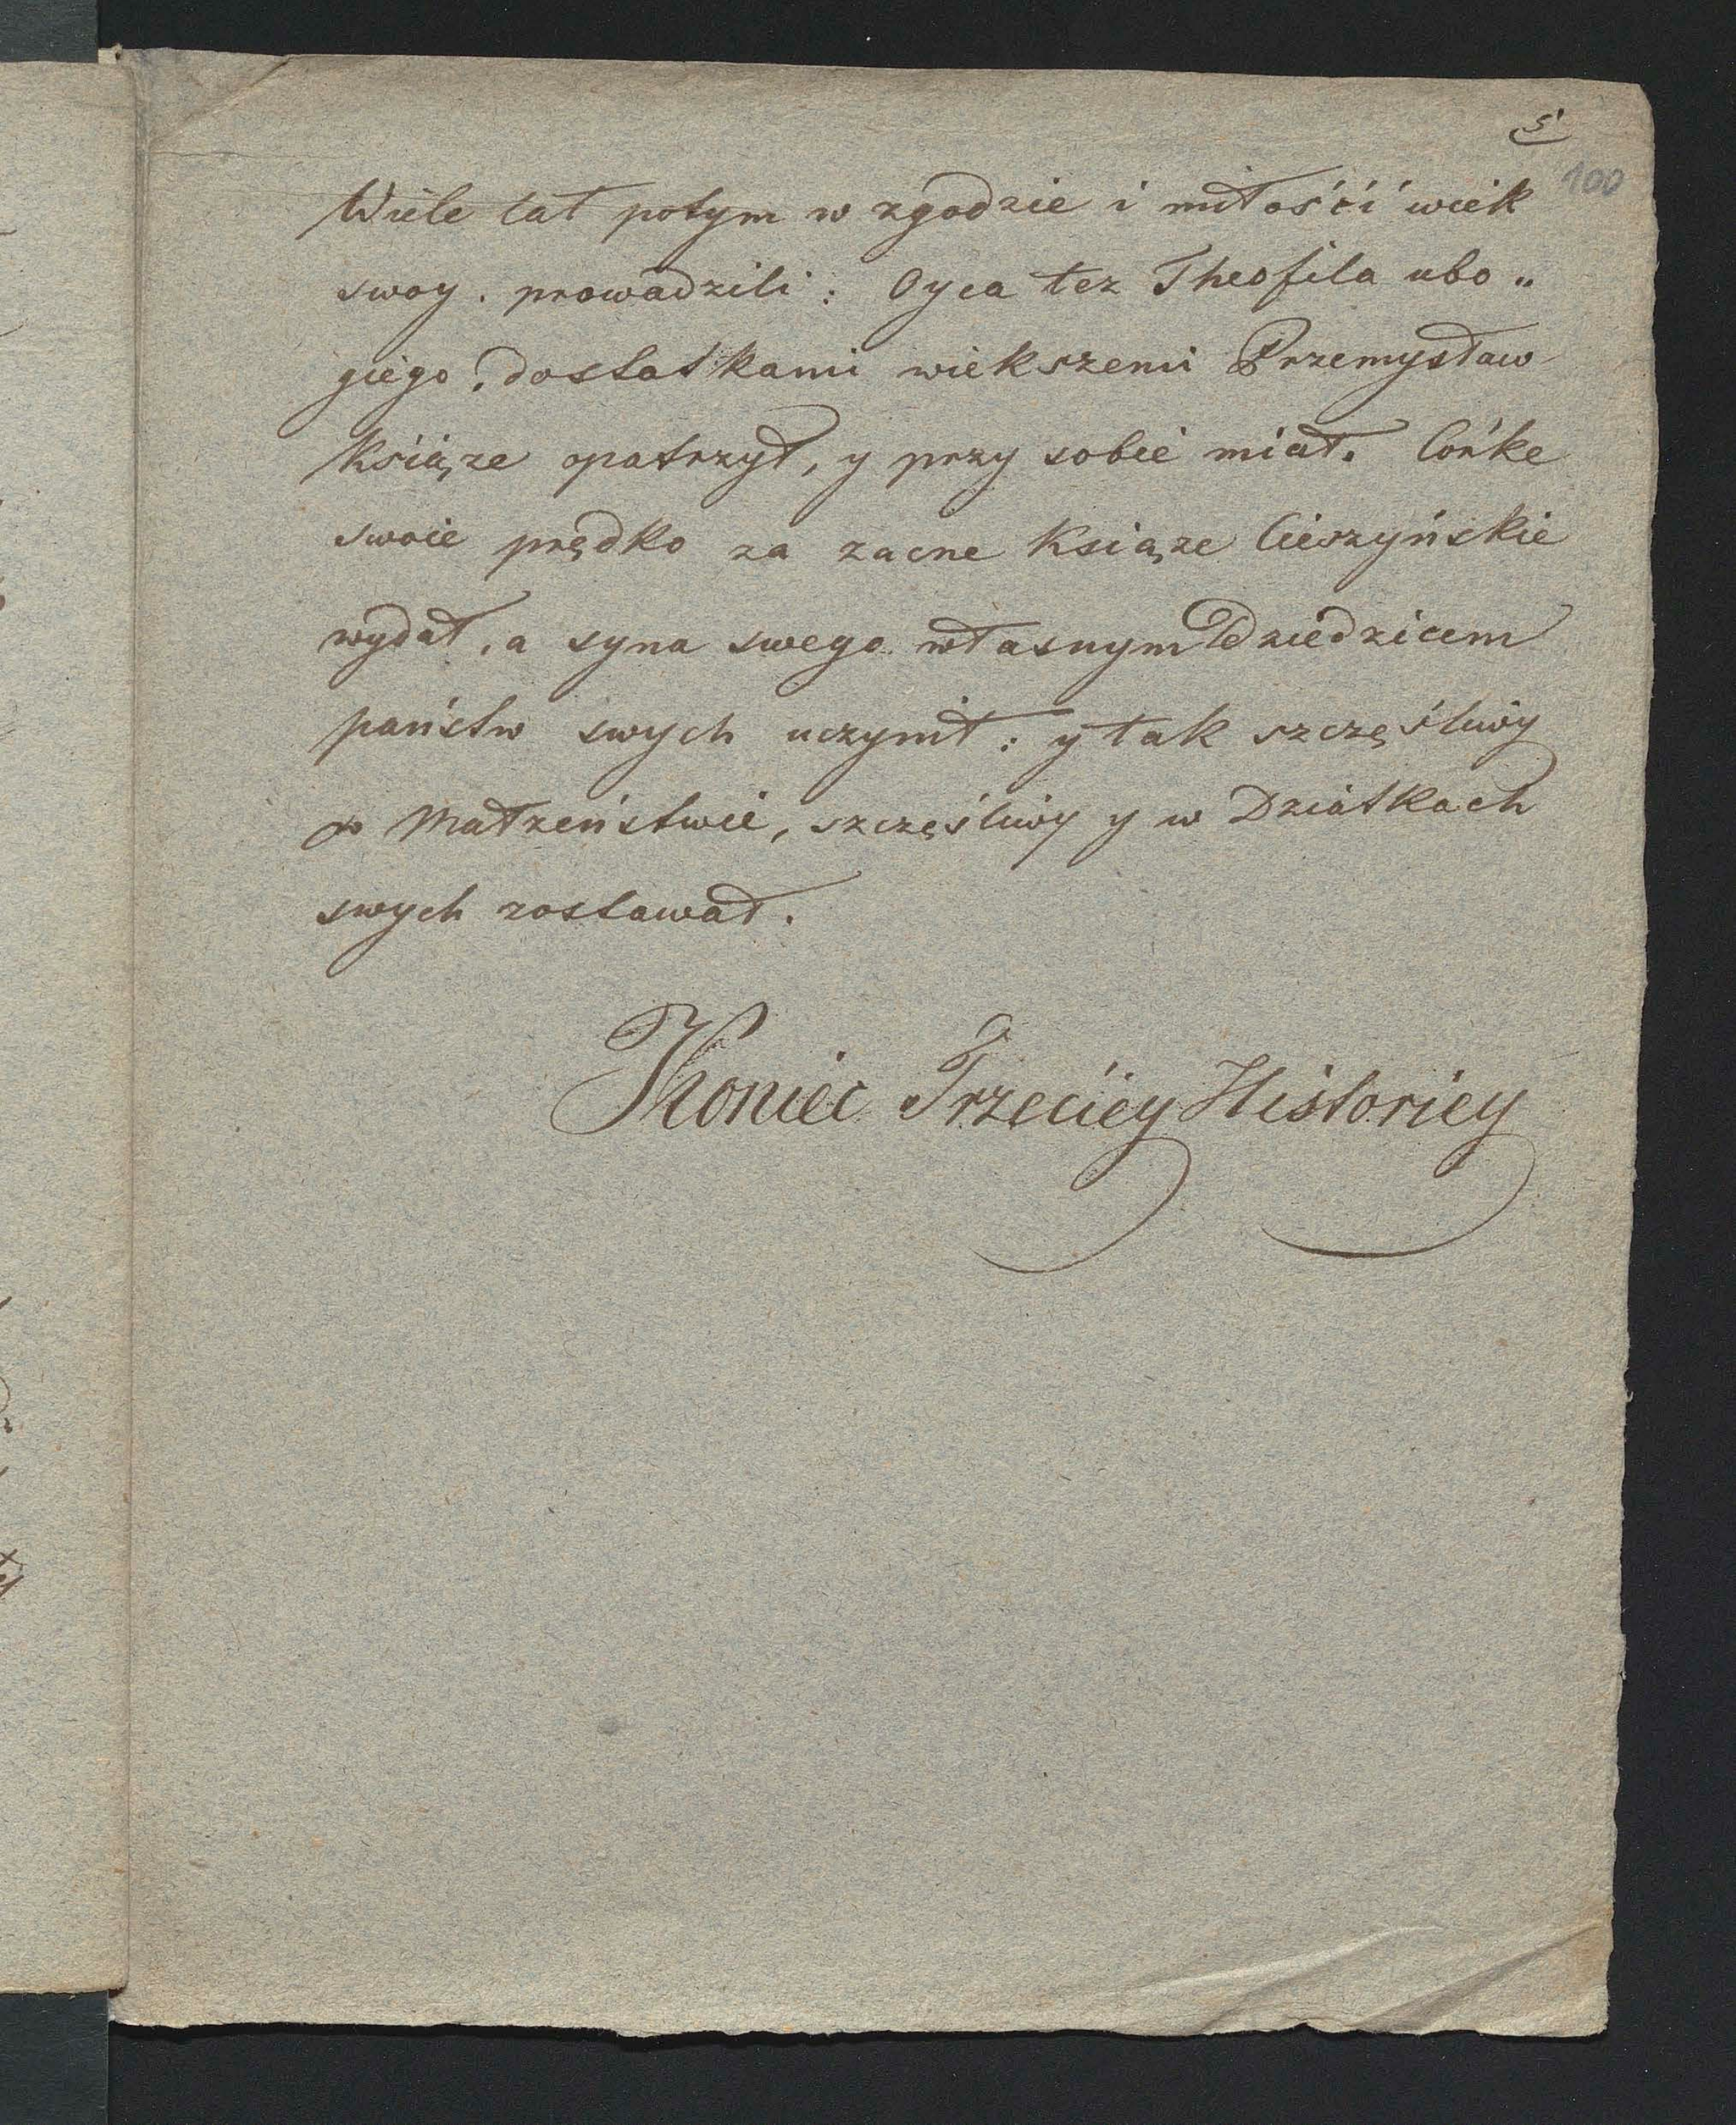 5
100
Wiele lat potym w zgodzie i miłośći wiek
swoy. prowadzili: Oyca tez Theofila ubo„
giego. dostatkami wiekszemi Przemysław
Ksiąze opatrzył, y przy sobie miał. Córke
swoie prędko za zacne Ksiąze Cieszyńskie
wydał, a syna swego własnym Dziedzicem
państw swych uczynił: y tak szczęśliwy
w Małzeństwie, szczęśliwy y w Dziatkach
swych zostawał.
Koniec Trzeciey Historiey